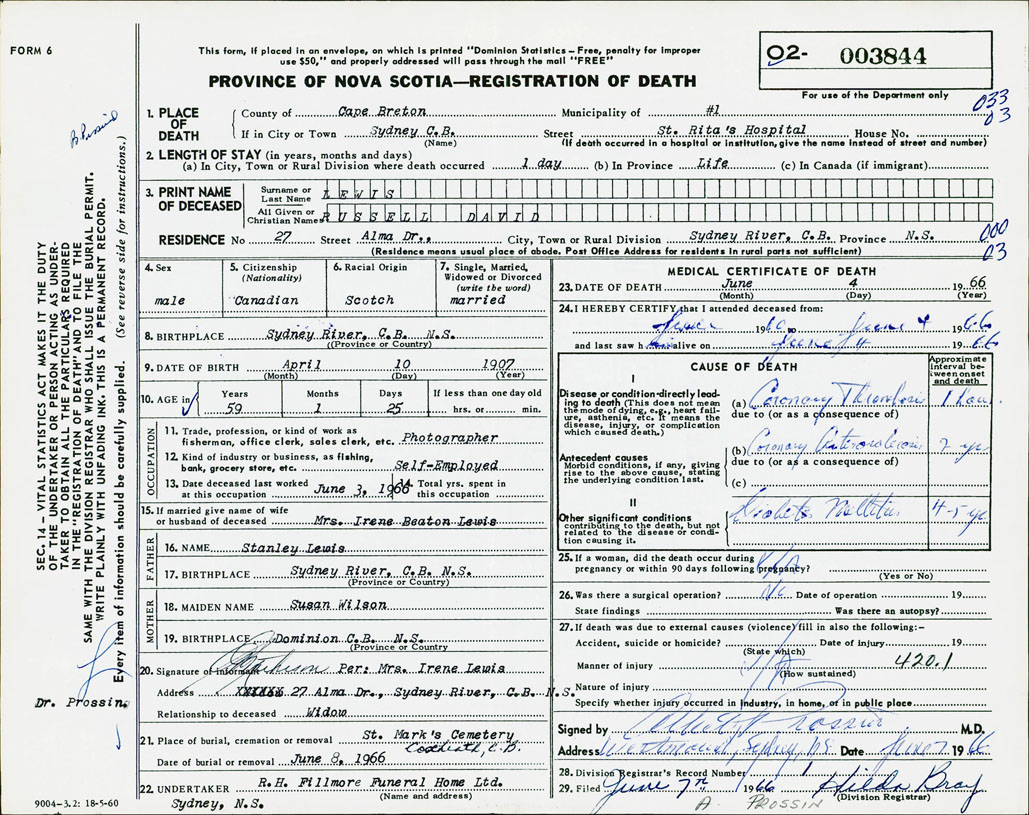 FORM 6
This form, if placed in an envelope, on which is printed "Dominion Statistics – Free, penalty for improper
use $50," and properly addressed will pass through the mail "FREE"
PROVINCE OF NOVA SCOTIA—REGISTRATION OF DEATH
02- 003844
For use of the Department only
033
03
1. PLACE OF DEATH
County of Cape Breton Municipality of #1
If in City or Town Sydney C.B. Street St. Rita's Hospital House No.
(Name) (If death occurred in a hospital or institution, give the name instead of street and number)
2. LENGTH OF STAY (in years, months and days)
(a) In City, Town or Rural Division where death occurred 1 day (b) In Province Life (c) In Canada (if immigrant)
3. PRINT NAME OF DECEASED
Surname or Last Name LEWIS
All Given or Christian Names RUSSELL DAVID
RESIDENCE No 27 Street Alma Dr., City, Town or Rural Division Sydney River, C.B. Province N.S.
(Residence means usual place of abode. Post Office Address for residents in rural parts not sufficient)
000
03
4. Sex
male
5. Citizenship (Nationality)
Canadian
6. Racial Origin
Scotch
7. Single, Married, Widowed or Divorced (write the word)
married
8. BIRTHPLACE Sydney River, C.B. N.S.
(Province or Country)
9. DATE OF BIRTH April 10 1907
(Month) (Day) (Year)
10. AGE in
Years Months Days If less than one day old
59 1 25 hrs. or min.
OCCUPATION
11. Trade, profession, or kind of work as
fisherman, office clerk, sales clerk, etc. Photographer
12. Kind of industry or business, as fishing,
bank, grocery store, etc. Self-Employed
13. Date deceased last worked at this occupation June 3, 1966
14. Total yrs. spent in this occupation
15. If married give name of wife
or husband of deceased Mrs. Irene Beaton Lewis
FATHER
16. NAME Stanley Lewis
17. BIRTHPLACE Sydney River, C.B. N.S.
(Province or Country)
MOTHER
18. MAIDEN NAME Susan Wilson
19. BIRTHPLACE Dominion C.B. N.S.
(Province or Country)
20. Signature of informant Per: Mrs. Irene Lewis
Address XXXXXX 27 Alma Dr., Sydney River, C.B. N.S.
Relationship to deceased Widow
21. Place of burial, cremation or removal St. Mark's Cemetery
Coxheath, C.B.
Date of burial or removal June 8, 1966
22. UNDERTAKER R.H. Fillmore Funeral Home Ltd.
(Name and address)
Sydney, N.S.
9004-3.2: 18-5-60
MEDICAL CERTIFICATE OF DEATH
23. DATE OF DEATH June 4 1966
(Month) (Day) (Year)
24. I HEREBY CERTIFY that I attended deceased from:
June 4 1966
and last saw him alive on June 4 1966
CAUSE OF DEATH
Approximate interval between onset and death
I
Disease or condition directly leading to death (This does not mean the mode of dying, e.g., heart failure, asthenia, etc. It means the disease, injury, or complication which caused death.)
(a) Coronary Thrombosis 1 hour
due to (or as a consequence of)
Antecedent causes
Morbid conditions, if any, giving rise to the above cause, stating the underlying condition last.
(b) Coronary 2 yrs
due to (or as a consequence of)
(c)
II
Other significant conditions
contributing to the death, but not related to the disease or condition causing it.
Diabetes Mellitus 4-5 yr
25. If a woman, did the death occur during
pregnancy or within 90 days following pregnancy? N/A
(Yes or No)
26. Was there a surgical operation? No Date of operation 19
State findings Was there an autopsy?
27. If death was due to external causes (violence) fill in also the following:-
Accident, suicide or homicide? Date of injury 19
(State which)
Manner of injury N/A 420.1
(How sustained)
Nature of injury
Specify whether injury occurred in industry, in home, or in public place
Signed by Albert Prossin M.D.
Address Westmount, Sydney, NS. Date June 7 1966
28. Division Registrar's Record Number 1
29. Filed June 7th 1966 Hilda Bray
(Division Registrar)
A. PROSSIN
SEC. 14 – VITAL STATISTICS ACT MAKES IT THE DUTY
OF THE UNDERTAKER OR PERSON ACTING AS UNDER-
TAKER TO OBTAIN ALL THE PARTICULARS REQUIRED
IN THE "REGISTRATION OF DEATH" AND TO FILE THE
SAME WITH THE DIVISION REGISTRAR WHO SHALL ISSUE THE BURIAL PERMIT.
WRITE PLAINLY WITH UNFADING INK. THIS IS A PERMANENT RECORD.
Every item of information should be carefully supplied. (See reverse side for instructions.)
Dr. Prossin,